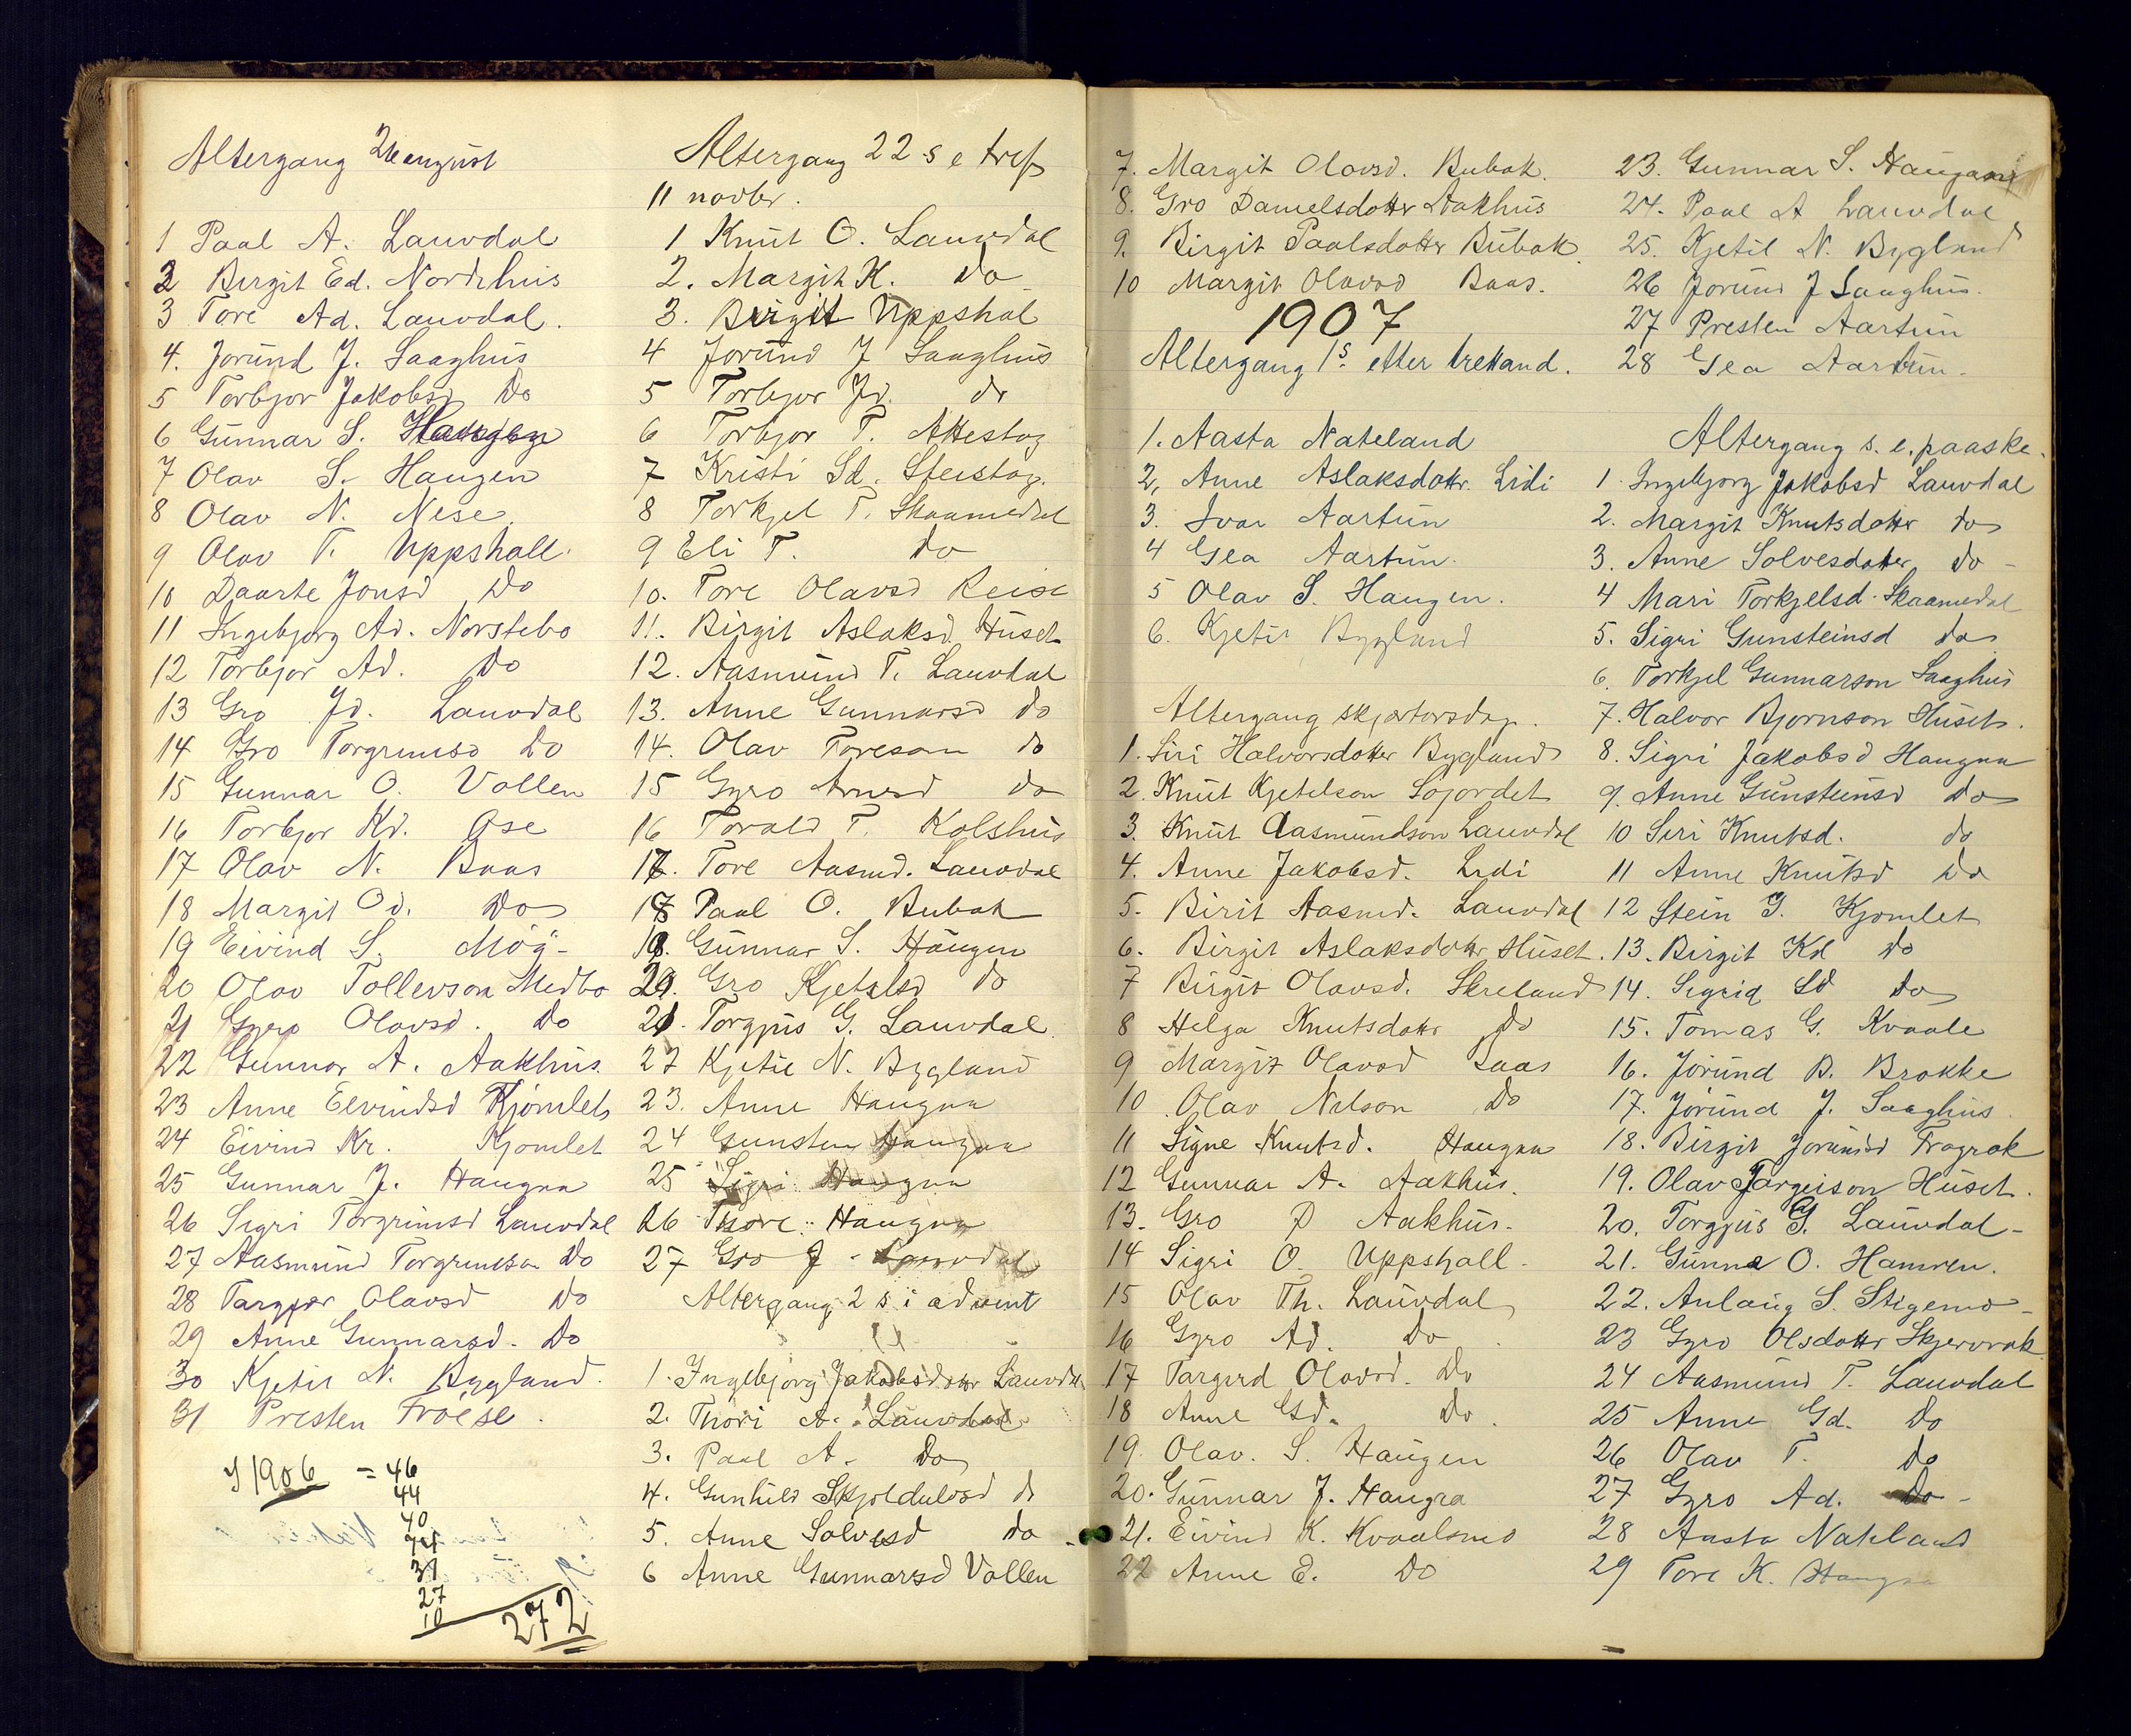 Altergang 26 august
1 Paal A. Lauvdal
2 Birgit Ed. Nordihuis
3 Tore Ad. Lauvdal.
4. Jorund J. Saaghus
5 Torbjor Jakobsd Do
6 Gunnar S. Haugen
7 Olav S. Haugen
8 Olav N. Nese
9 Olav T. Uppshall.
10 Daarte Jonsd Do
11 Ingebjorg Ad. Norstebo
12 Torbjor Ad. Do
13 Gro Jd. Lauvdal
14 Gro Torgrimsd Do
15 Gunnar O. Vollen
16 Torbjor Kd. Ose
17 Olav N. Baas
18 Margit Od. Do
19 Eivind S. Mög-
20 Olav Tollevson Medbo
21 Gyro Olavsd. Do
22 Gunnar A. Aakhus.
23 Anne Eivindsd Kjomlet
24 Eivind Kr. Kjomlet
25 Gunnar J. Haugaa
26 Sigri Torgrimsd Lauvdal
27 Aasmund Torgrimson Do
28 Targjær Olavsd Do
29 Anne Gunnarsd. Do
30 Kjetil N. Bygland.
31 Presten Froese.
I 1906 = 46
44
40
74
31
27
10
272
Altergang 22 s e tref
11 novbr.
1 Knut O. Lauvdal
2. Margit K. Do
3. Birgit Uppshal
4 Jorund J Saaghus
5 Torbjor Jd. do
6 Torbjor T. Attestog
7 Kristi Sd. Steistog.
8 Torkjel T. Skaamedal
9 Eli T. Do
10. Tore Olavsd Reise
11. Birgit Aslaksd Huset
12. Aasmund T. Lauvdal
13. Anne Gunnarsd Do
14. Olav Toreson do
15 Gyro Arnesd do
16 Torald T. Kolshus
17. Tore Aasmd. Lauvdal
18 Paal O. Bubak
19. Gunnar S. Haugen
20. Gro Kjetilsd Do
21. Torgjus G. Lauvdal.
22 Kjetil N. Bygland
23. Anne Haugaa
24 Gunstein Haugaa
25 Sigri Haugaa
26 Thore Haugaa
27 Gro J. Lauvdal
Altergang 2 s i advent
1. Ingebjorg Jakobsdotter Lauvdal
2. Thori A. Lauvdal
3. Paal A. Do
4. Gunhild Skjoldulvsd do
5. Anne Solvesd do
6 Anne Gunnarsd Vollen
7. Margit Olavsd. Bubak.
8. Gro Danielsdotter Aakhus
9. Birgit Paalsdotter Bubak.
10 Margit Olavsd Baas.
1907
Altergang 1s. etter trettand.
1. Aasta Nateland
2. Anne Aslaksdottr. Lidi
3. Ivar Aartun
4 Gea Aartun.
5 Olav S. Haugen.
6. Kjetil Bygland
Altergang skjærtorsdag.
1. Siri Halvorsdotter Bygland
2. Knut Kjetelson Sojordet
3. Knut Aasmundson Lauvdal
4. Anne Jakobsd. Lidi
5. Birit Aasmd. Lauvdal
6. Birgit Aslaksdottr Huset.
7 Birgit Olavsd. Skreland
8 Helga Knutsdottr Do
9 Margit Olavsd Baas
10 Olav Nelson Do
11 Signe Knutsd. Haugaa
12 Gunnar A. Aakhus.
13. Gro D Aakhus.
14 Sigri O. Uppshall.
15 Olav Th. Lauvdal
16 Gyro Ad. Do
17 Targerd Olavsd. Do
18 Anne Gd. Do.
19. Olav. S. Haugen
20. Gunnar J. Haugaa
21. Eivind K. Kvaalsmo
22 Anne E. Do
23. Gunnar S. Haugaa
24. Paal A Lauvdal
25. Kjetil N. Bygland
26 Jorund J Saaghus.
27 Presten Aartun
28 Gea Aartun.
Altergang s. e. paaske.
1. Ingebjorg Jakobsd Lauvdal
2. Margit Knutsdotter do
3. Anne Solvesdotter do
4 Mari Torkjelsd. Skaamedal
5. Sigri Gunsteinsd do
6. Torkjel Gunnarson Saaghus
7. Halvor Bjornson Huset.
8. Sigri Jakobsd Haugaa
9. Anne Gunsteinsd do
10 Siri Knutsd. do
11 Anne Knutsd Do
12 Stein G. Kjomlet
13. Birgit Kd Do
14. Sigrid Sd Do
15. Tomas G. Kvaale
16. Jorund B. Brokke
17. Jorund J. Saaghus.
18. Birgit Jorundsd Frøyrak
19. Olav Targeison Huset.
20. Torgjus G. Lauvdal-
21. Gunne O. Hamren.
22. Anlaug S. Stigemo-
23 Gyro Olsdottr Skjervrak
24 Aasmund T. Lauvdal
25 Anne Gd. Do
26 Olav T. Do
27 Gyro Ad. Do-
28 Aasta Natland
29 Tore K. Haugaa